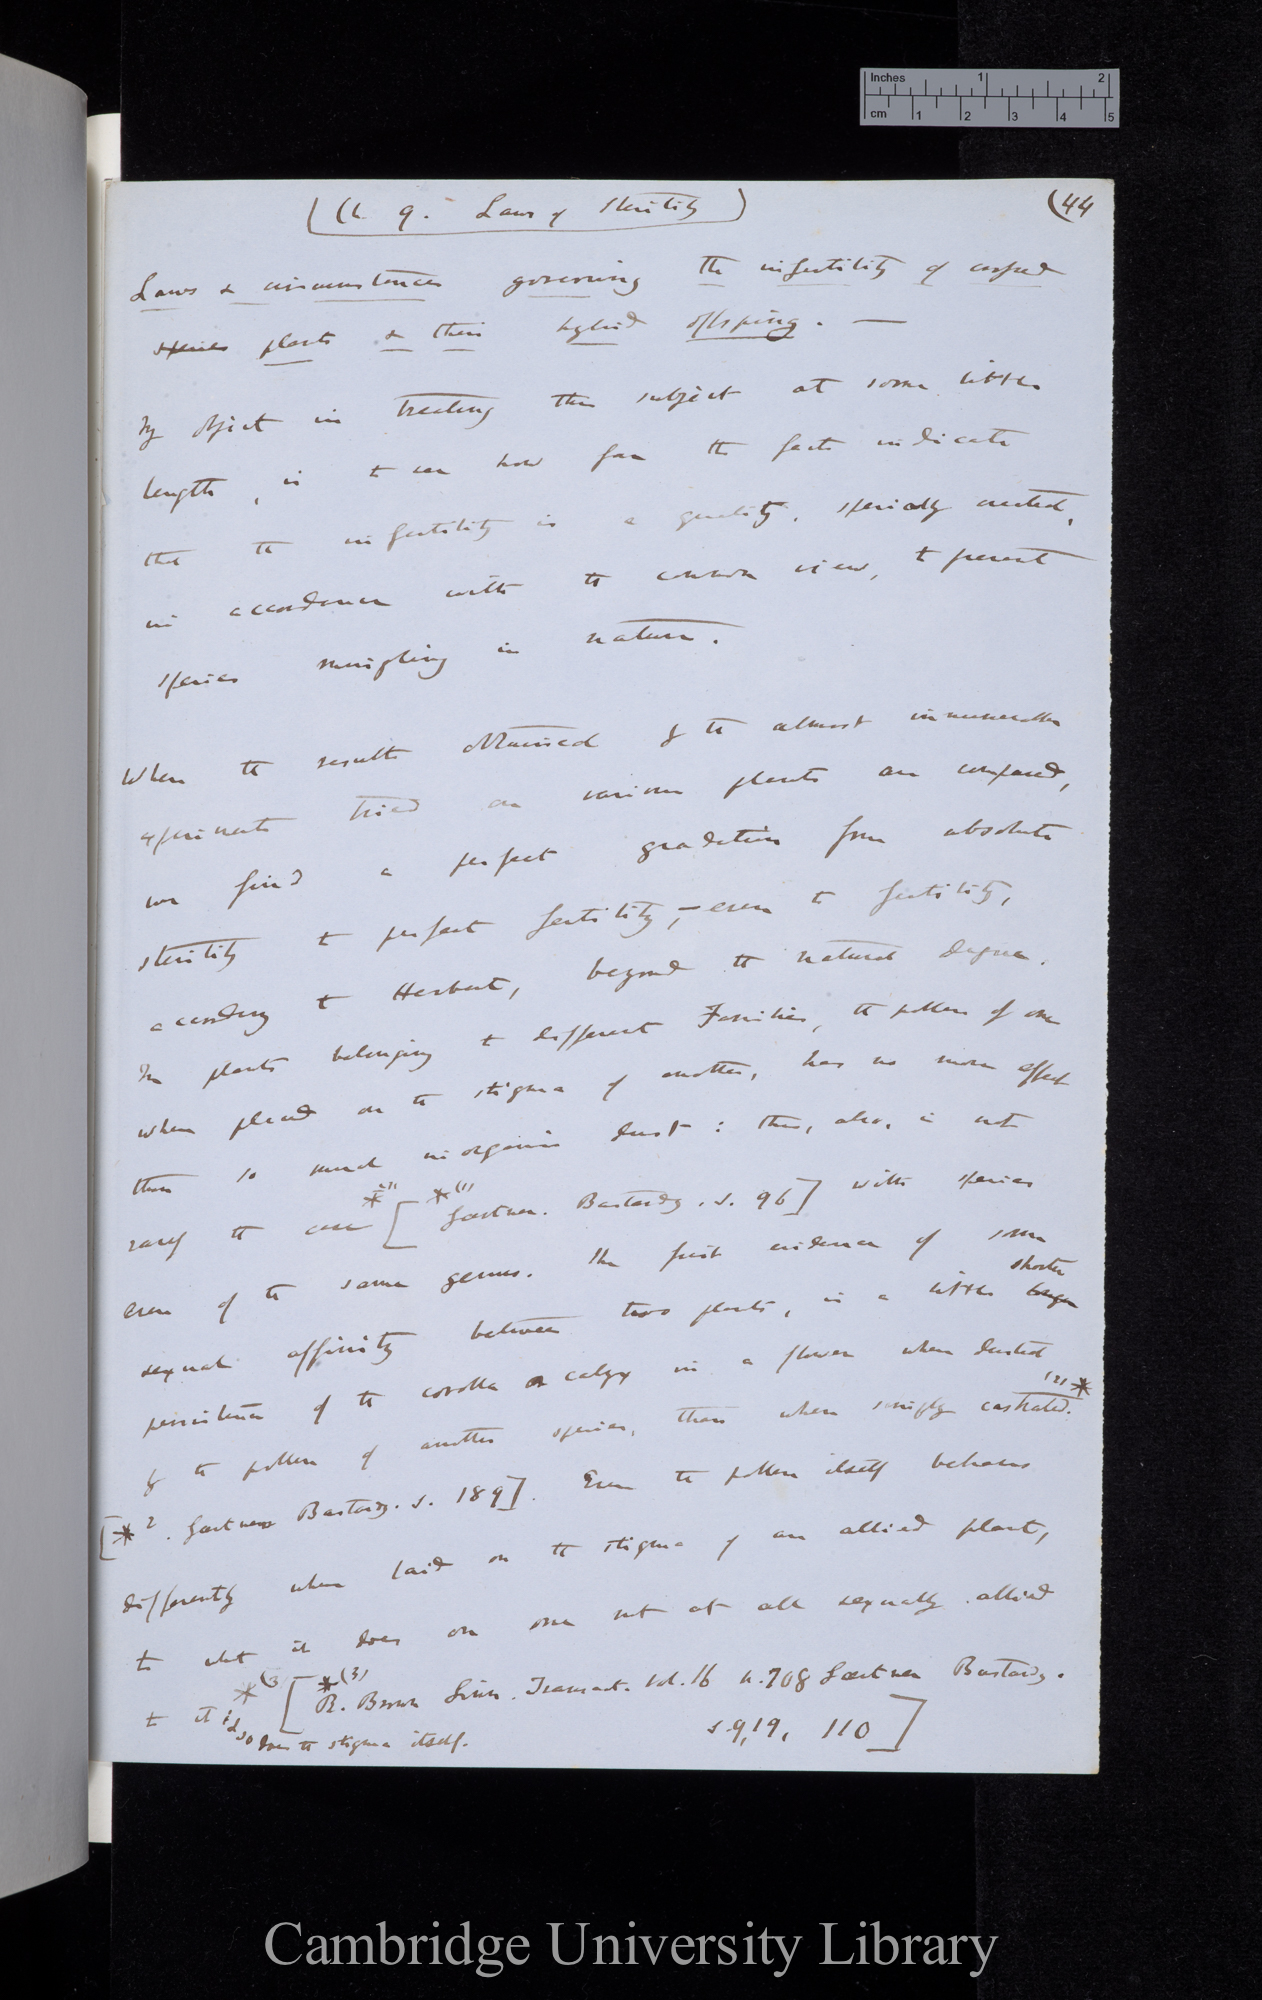 Inches 1 2
cm 1 2 3 4 5
(Ch 9. Laws of Sterility)
(44
Laws & circumstances governing the infertility of crossed
species plants & their hybrid offspring. —
My object in treating this subject at some little
length, is to see how far the facts indicate
that the infertility is a quality, specially created,
in accordance with the common view, to prevent
species mingling in nature.
When the results obtained by the almost innumerable
experiments tried on various plants are compared,
we find a perfect gradation from absolute
sterility to perfect fertility,—even to fertility,
according to Herbert, beyond the natural degree.
In plants belonging to different Families, the pollen of one
when placed on the stigma of another, has no more effect
than so much inorganic dust: this, also, is not
rarely the case *(1) [*(1) Gaertner. Bastardz. s. 96] with species
even of the same genus. The first evidence of some
sexual affinity between two plants, is a little longer shorter
persistence of the corolla or calyx in a flower when dusted
by the pollen of another species, than when simply castrated. (2)*
[*2. Gaertner Bastardz. s. 189]. Even the pollen itself behaves
differently when laid on the stigma of an allied plant,
to what it does on one not at all sexually allied
to it & so does the stigma itself. *(3) [*(3) R. Brown Linn. Transact. vol. 16 p. 708 Gaertner Bastardz.
s. 9, 19, 110]
Cambridge University Library